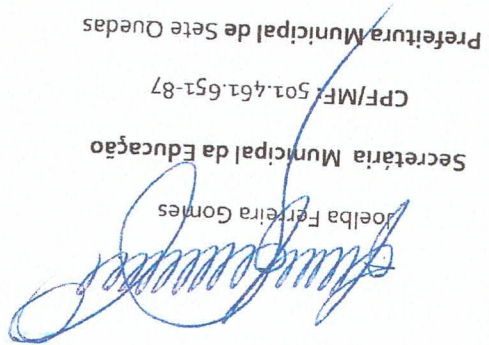 Joelba Ferreira Gomes
Secretária Municipal da Educação
CPF/MF: 501.461.651-87
Prefeitura Municipal de Sete Quedas